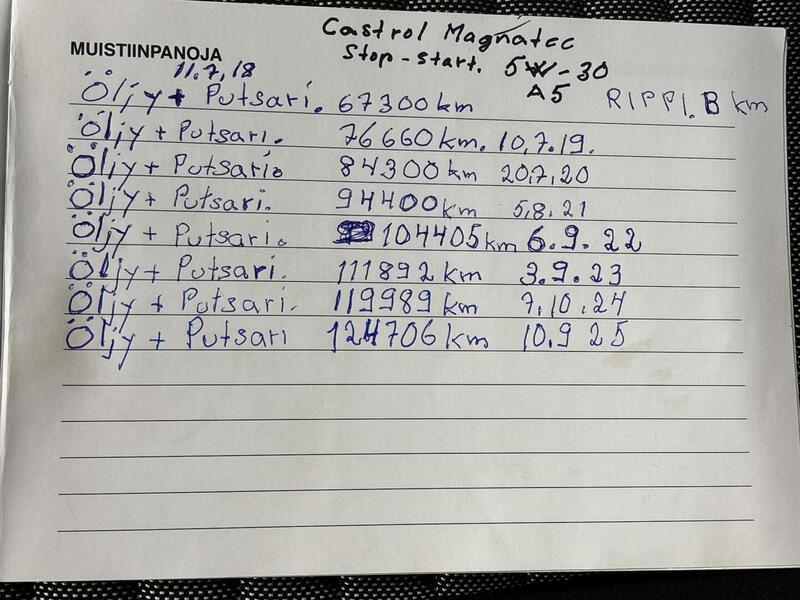 Castrol Magnatec
MUISTIINPANOJA
Stop-start. 5W-30
11.7.18
A5
Öljy + Putsari. 67300 km RIPPI. B km
Öljy + Putsari. 76660 km. 10.7.19.
Öljy + Putsari. 84300 km 20.7.20
Öljy + Putsari. 94400 km 5.8.21
Öljy + Putsari. 104405 km 6.9.22
Öljy + Putsari. 111892 km 3.9.23
Öljy + Putsari. 119989 km 7.10.24
Öljy + Putsari 124706 km 10.9 25